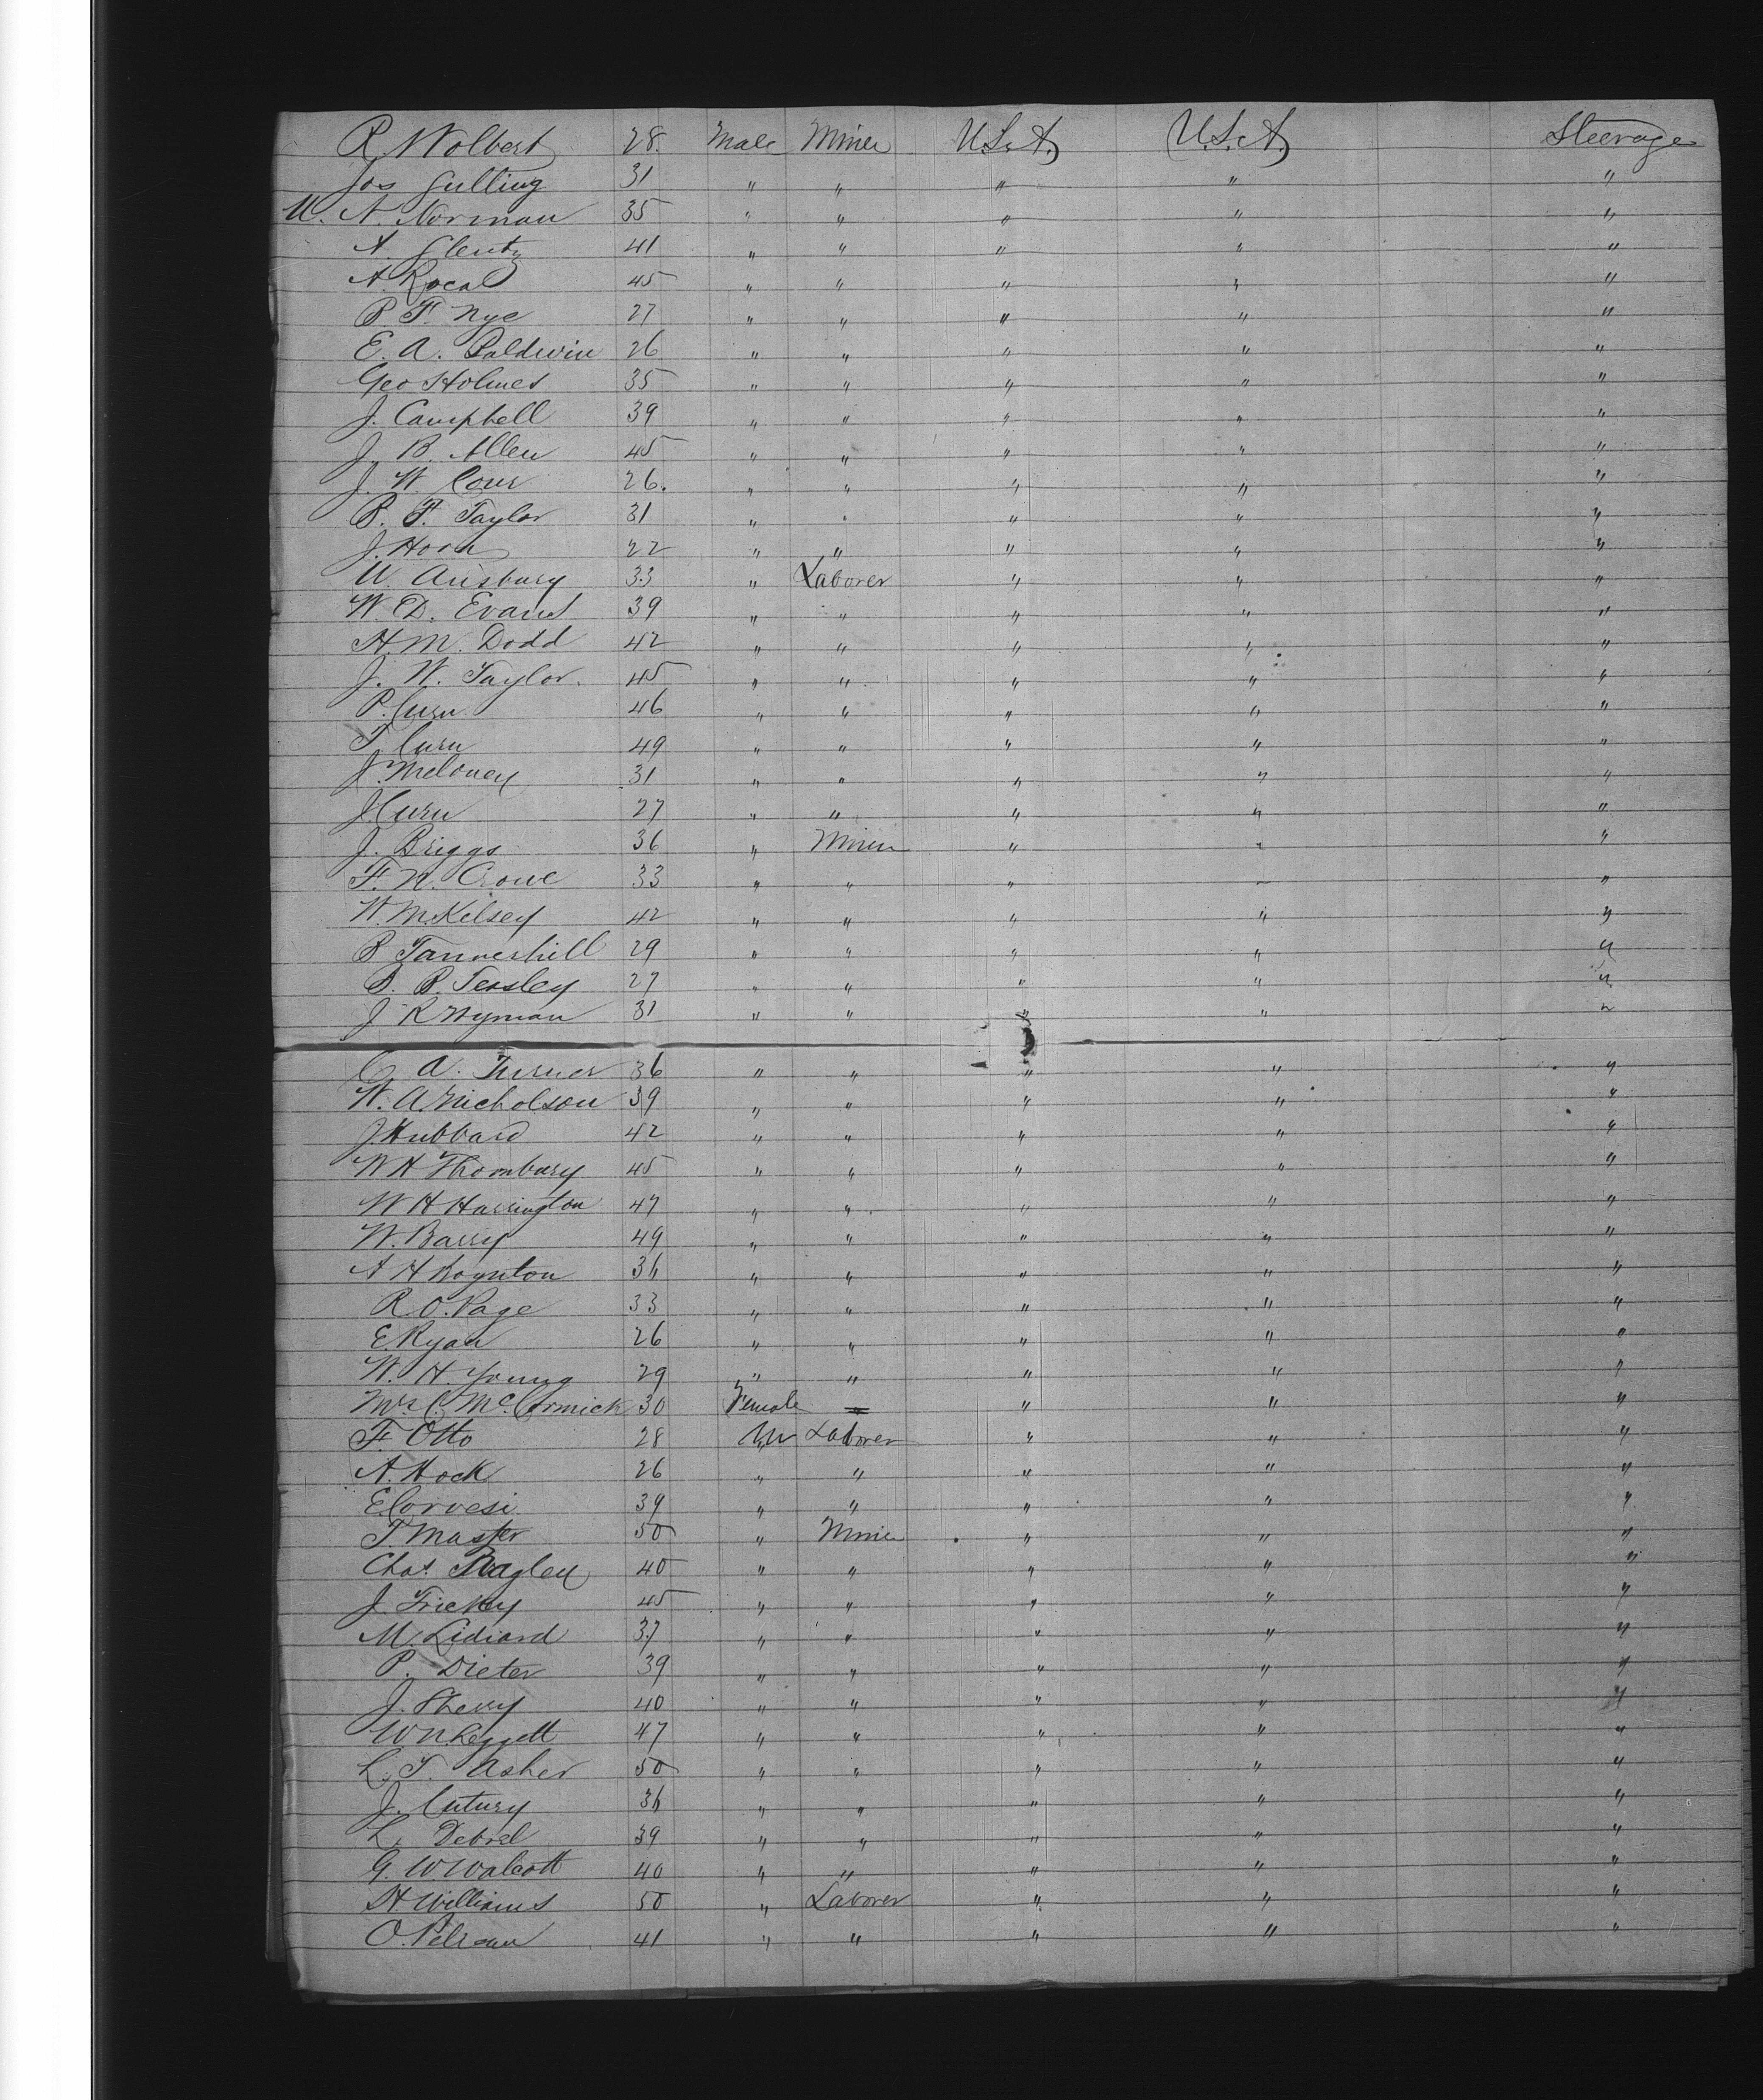 R. Wolbert 28. Male Miner U.S.A. U.S.A. Steerage
Jos Gulling 31 " " " " "
W. N. Norman 35 " " " " "
A. Glentz 41 " " " " "
A. Roca 45 " " " " "
B F. Nye 27 " " " " "
E. A. Baldwin 26 " " " " "
Geo Holmes 35 " " " " "
J. Campbell 39 " " " " "
J. B. Allen 45 " " " " "
J. W. 26. " " " " "
B. F. Taylor 31 " " " " "
J. Horn 22 " " " " "
W. Ainsbury 33 " Laborer " " "
W. D. Evans 39 " " " " "
H. M. Dodd 42 " " " " "
J. W. Taylor. 45 " " " " "
P. Curn 46 " " " " "
T. Curn 49 " " " " "
J. Meloney 31 " " " " "
J. Curn 27 " " " " "
J. Briggs 36 " Miner " " "
F. N. Crowe 33 " " " " "
W. McKelsey 42 " " " " "
B Tannerhill 29 " " " " "
B. P. Teasley 27 " " " " "
J R Wyman 31 " " " " "
C. A. Turner 36 " " " " "
W. A. Nicholson 39 " " " " "
J. Hubbard 42 " " " " "
W H Thornbury 45 " " " " "
W H Harrington 47 " " " " "
W. Barry 49 " " " " "
A H Boynton 36 " " " " "
R. O. Page 33 " " " " "
E. Ryan 26 " " " " "
W. H. Young 29 " " " " "
Mrs C. McCormick 30 Female " " "
F. Otto 28 M Laborer " " "
A. Hock 26 " " " " "
E. Corvesi 39 " " " " "
T. Master 50 " Miner " " "
Chas. Bagley 40 " " " " "
J. Frickey 45 " " " " "
M. Lidiard 37 " " " " "
P. Dieter 39 " " " " "
J. Sherry 40 " " " " "
W N. Leggett 47 " " " " "
L. T. Asher 50 " " " " "
J. Cutury 36 " " " " "
L. Debrel 39 " " " " "
G. W Walcott 40 " " " " "
H Williams 50 " Laborer " " "
O. 41 " " " " "